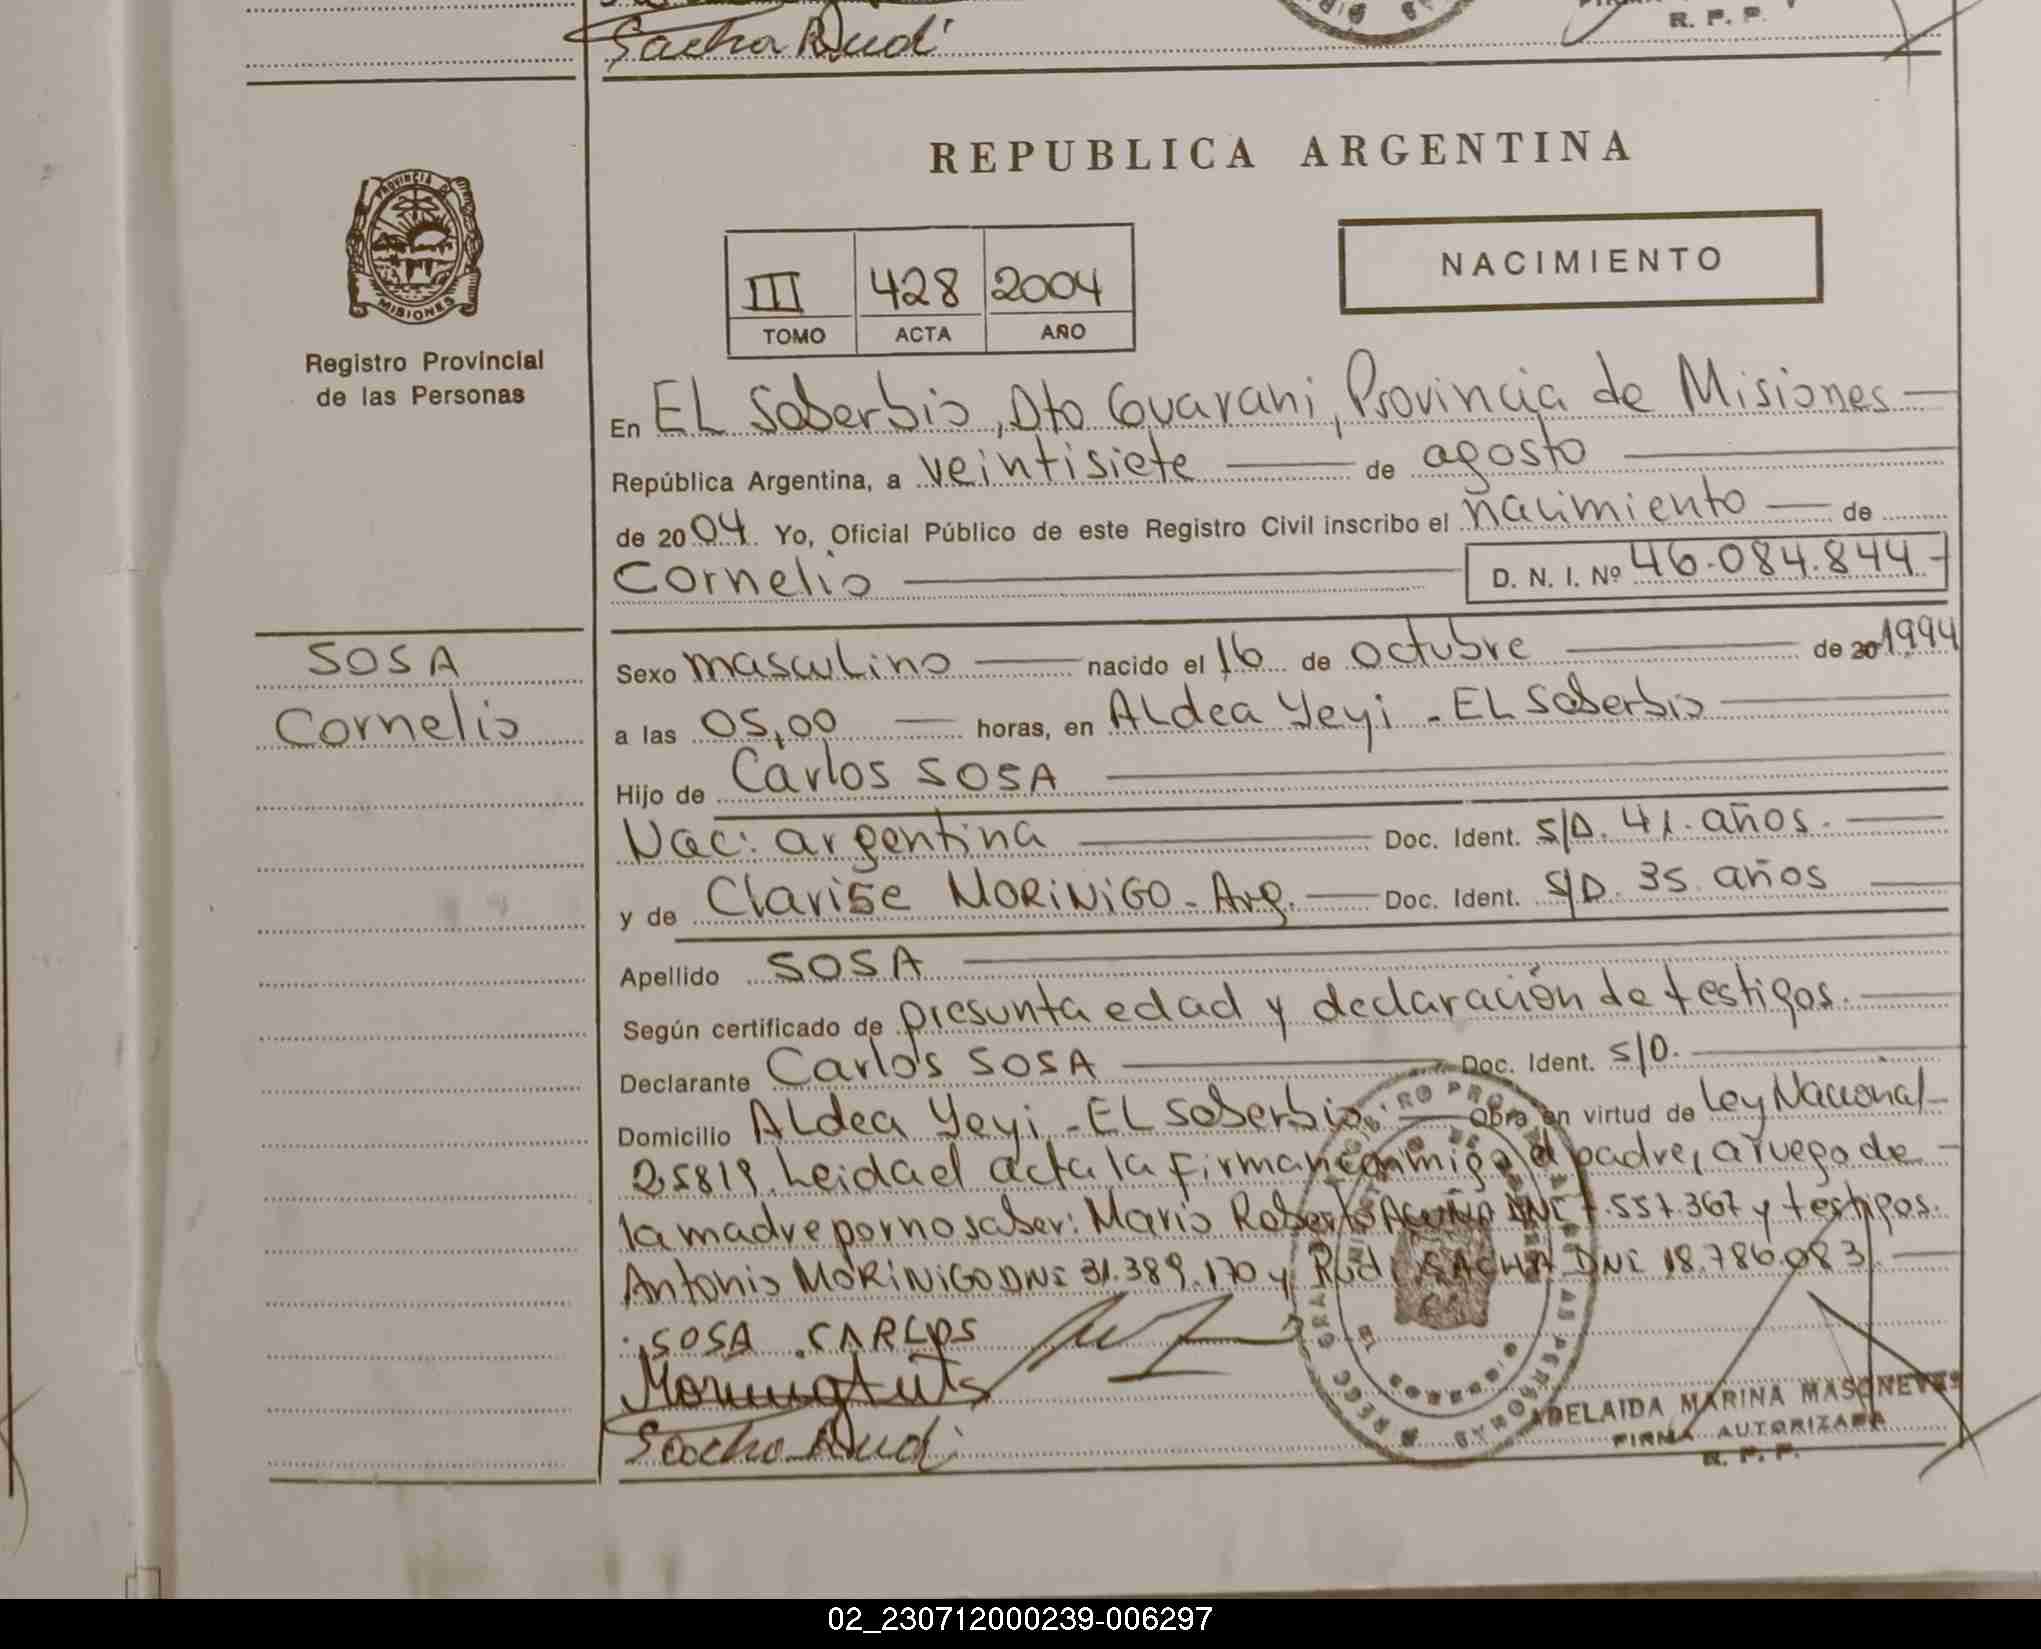 Sacha Rudi
R. P. P.
PROVINCIA DE
MISIONES
Registro Provincial
de las Personas
REPUBLICA ARGENTINA
III 428 2004
TOMO ACTA AÑO
NACIMIENTO
En EL Soberbio, Dto Guarani, Provincia de Misiones
República Argentina, a veintisiete de agosto
de 2004. Yo, Oficial Público de este Registro Civil inscribo el nacimiento de
Cornelio D. N. I. Nº 46.084.844.-
SOSA
Cornelio
Sexo masculino nacido el 16 de octubre de 20 1994
a las 05,00 horas, en ALdea Yeyi - EL Soberbio
Hijo de Carlos SOSA
Nac: argentina Doc. Ident. S/D. 41. años.
y de Clarise MORiNiGO - Arg. Doc. Ident. S/D. 35 años
Apellido SOSA
Según certificado de presunta edad y declaración de testigos.
Declarante Carlos SOSA Doc. Ident. S/D.
Domicilio ALdea Yeyi - EL Soberbio Obra en virtud de Ley Nacional
25819. Leida el acta la firman conmigo el padre, a ruego de
la madre por no saber: Mario Roberto ACUÑA DNI 7.557.367 y testigos.
Antonio MORiNiGO DNI 31.389.170 y Rudi SACHA DNI 18.786.083.
SOSA CARLOS
Sacha Rudi
ADELAIDA MARINA MASONEVES
FIRMA AUTORIZADA
R. P. P.
02_230712000239-006297